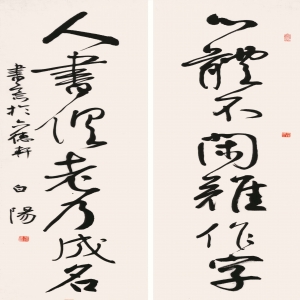 心體不閑難作字
人書俱老乃成名
書於德軒
白陽